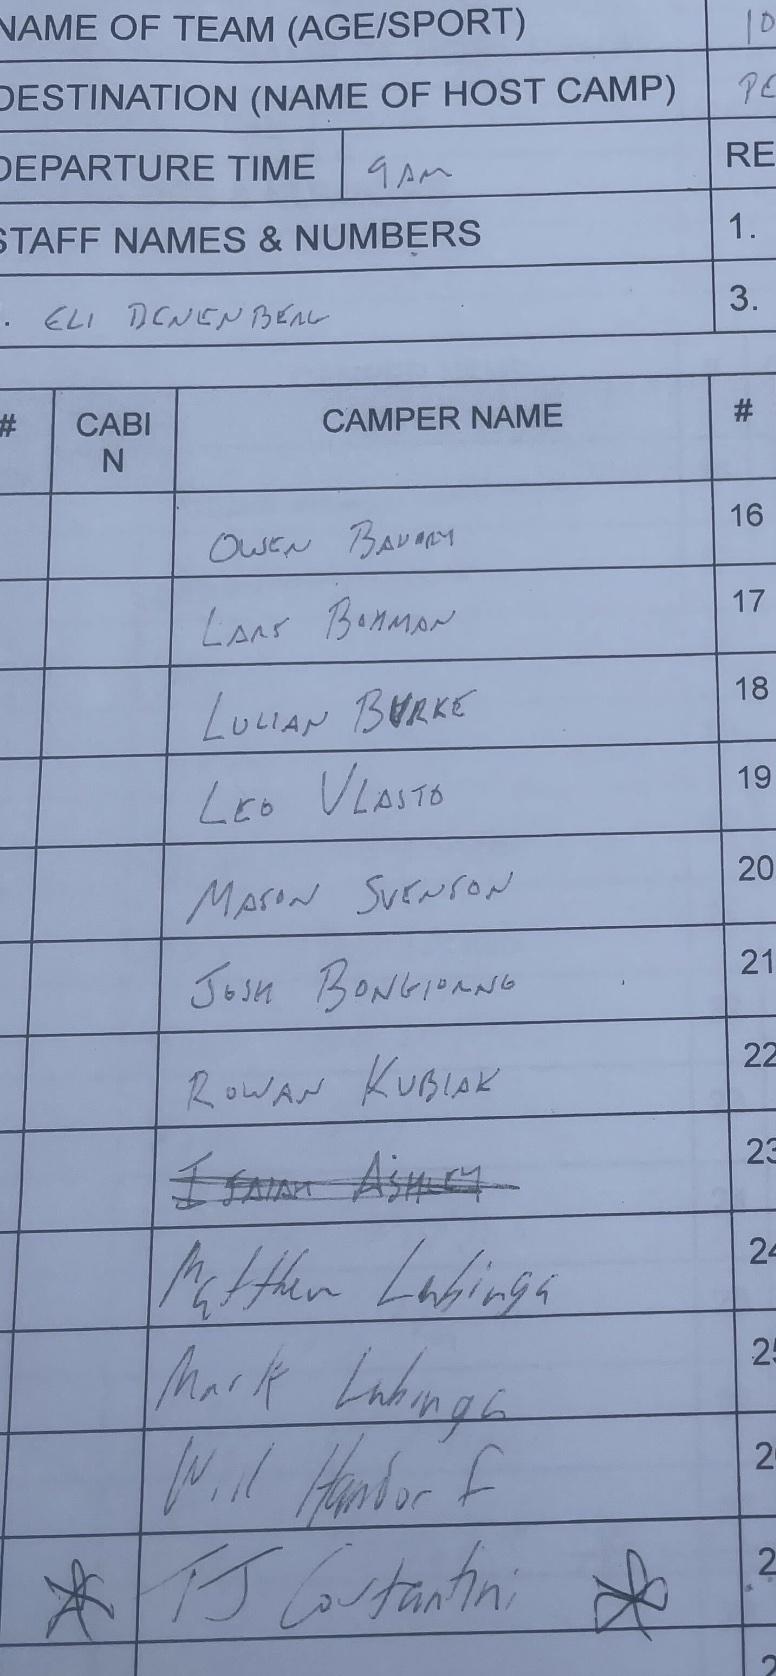 NAME OF TEAM (AGE/SPORT) 10
DESTINATION (NAME OF HOST CAMP) PE
DEPARTURE TIME 9 AM RE
STAFF NAMES & NUMBERS 1.
. ELI DENENBERG 3.
# CABI CAMPER NAME #
N
OWEN 16
LARS BOHMAN 17
LULIAN BURKE 18
LEO VLASTO 19
MASON SVENSON 20
JOSH BONGIORNO 21
ROWAN KUBIAK 22
ISAIAH ASHLEY 23
Matthew Lubinga 24
Mark Lubinga 25
Will Handorf 2
TJ Costantini 2
2